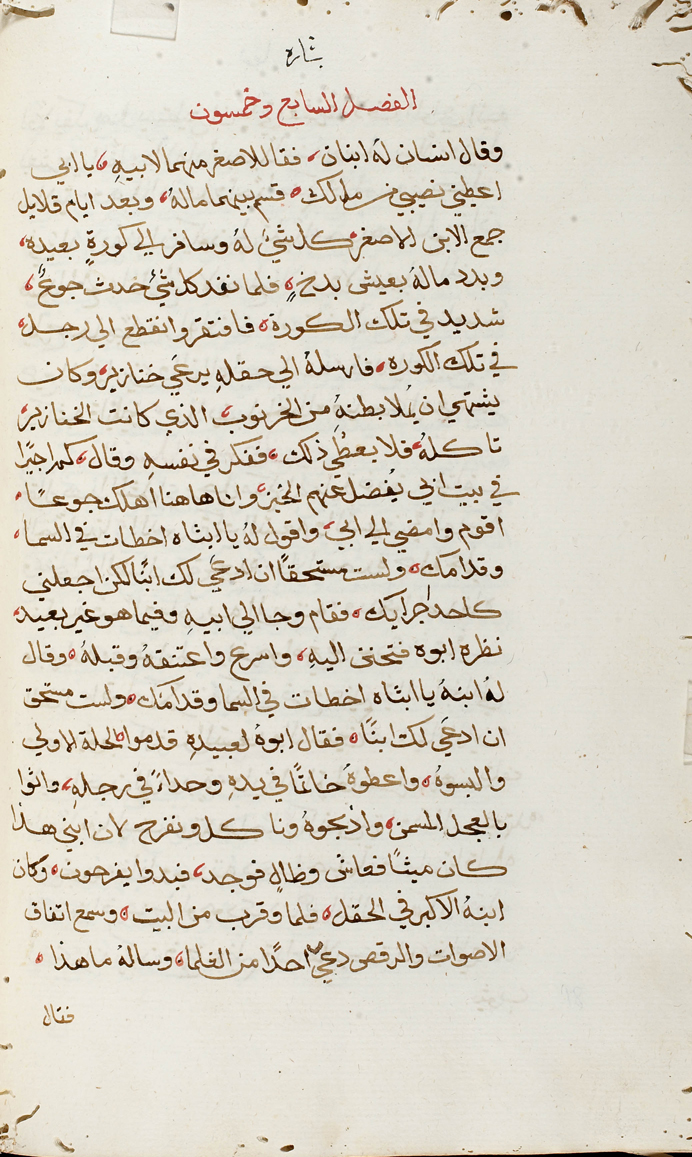 بشاره
الفصل السابع وخمسون
وقال انسان له ابنان، فقال لاصغر منهما لابيهِ، يا ابي
اعطيني نصيبي من مالك، قسم بينهما مالهُ، وبعد ايام قلايل
جمع الابن الاصغر كل شيً لهُ وسافر الي كورةٍ بعيدة،
وبدد مالهُ بعيش بدخٍ، فلما نفد كل شيً حدث جوعٌ،
شديد في تلك الكورة، فافتقر وانقطع الي رجل،
في تلك الكوره، فارسلهُ الي حقلهِ يرعَي خنازير، وكان
يشتهي ان يُملا بطنهُ من الخرنوب، الذي كانت الخنازير
تاكلهُ، فلا يعطُي ذلك، ففكر في نفسهِ وقال، كم اجيرًا
في بيت ابي يفضل عنهم الخبز، وانا هاهنا اهلك جوعًا،
اقوم وامضي الي ابي، واقول لهُ يا ابتاه اخطات في السما،
وقدامك، ولست مستحقًا ان ادعَي لك ابنًا لكن اجعلني
كاحد اجرايك، فقام وجا الي ابيهِ وفيما هو غير بعيد،
نظره ابوه فتحنن اليهِ، واسرع واعتنقهُ وقبلهُ، وقال
لهُ ابنهُ يا ابتاه اخطات في السما وقدامَك، ولست مستحق
ان ادعَي لك ابنًا، فقال ابوهُ لعبيدهِ قدموا الحلة الاولي
والبسوهُ، واعطوهُ خاتمًا في يدهِ وحداءً في رجلهِ، واتوا
بالعجل المسمن، واذبحوهُ وناكل ونفرح لان ابني هذا
كان ميتًا فعاش وظالٍ فوجد، فبدوا يفرحون، وكان
ابنهُ الاكبر في الحقل، فلما وقرب من البيت، وسمع اتفاق
الاصوات والرقص دعي احدًا من الغلما، وسالهُ ما هذا،
فقال